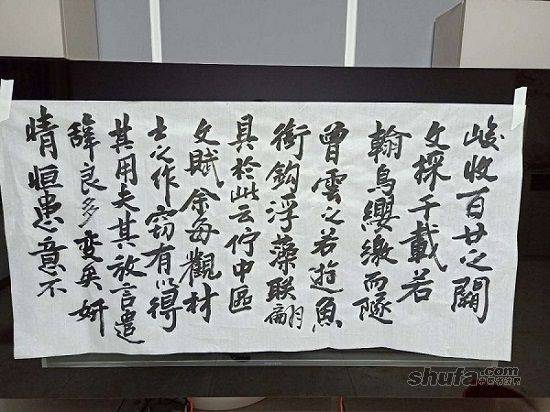 峻收百廿之闕
文採千載若
翰鳥纓繳而隧
曾雲之若遊魚
銜鈎浮藻联翩
具於此云佇中區
文賦余每觀材
士之作窃有以得
其用夫其放言遣
辭良多变矣妍
晴恒患意不
shufa.com